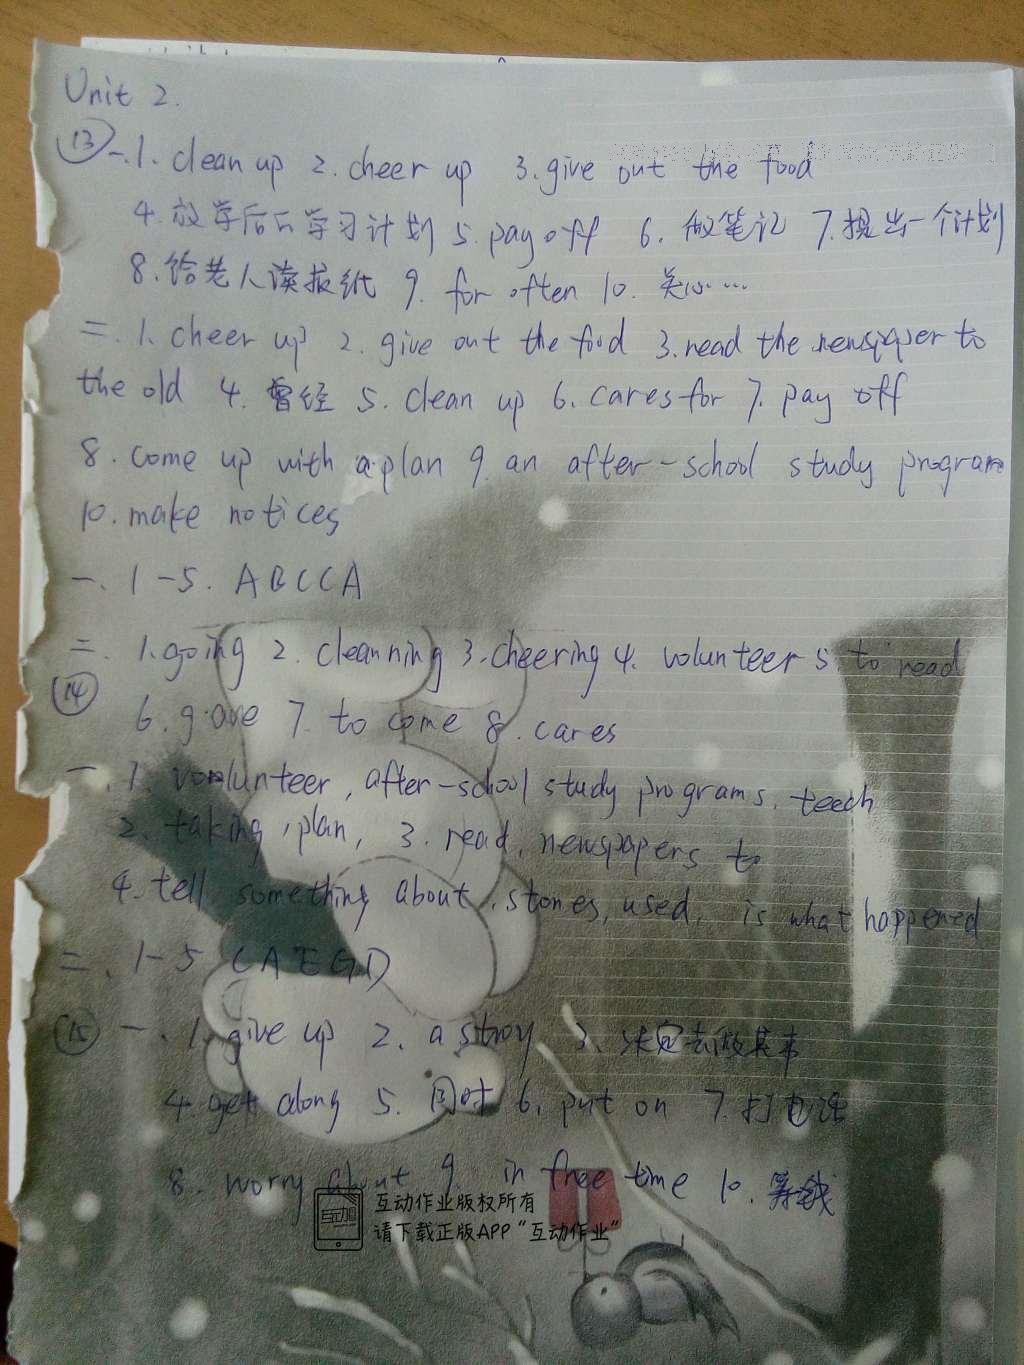 Unit 2.
⑬ 一.1. clean up 2. cheer up 3. give out the food
4. 放学后的学习计划 5. pay off 6. 做笔记 7. 提出一个计划
8. 给老人读报纸 9. for often 10. 关心…
二. 1. cheer up 2. give out the food 3. read the newspaper to
the old 4. 曾经 5. clean up 6. cares for 7. pay off
8. come up with a plan 9. an after-school study program
10. make notices
一. 1-5. ABCCA
二. 1. going 2. cleanning 3. cheering 4. volunteer 5 to read
⑭
6. gave 7. to come 8. cares
一. 1. volunteer, after-school study programs, teech
2. taking, plan, 3. read, newspapers to
4. tell something about, stories, used, is what happened
二. 1-5 CAEGD
⑮ 一. 1. give up 2. a stroy 3. 决定去做某事
4. get along 5. 同时 6. put on 7. 打电话
8. worry about 9. in free time 10. 算钱
互动作业版权所有
请下载正版APP“互动作业”